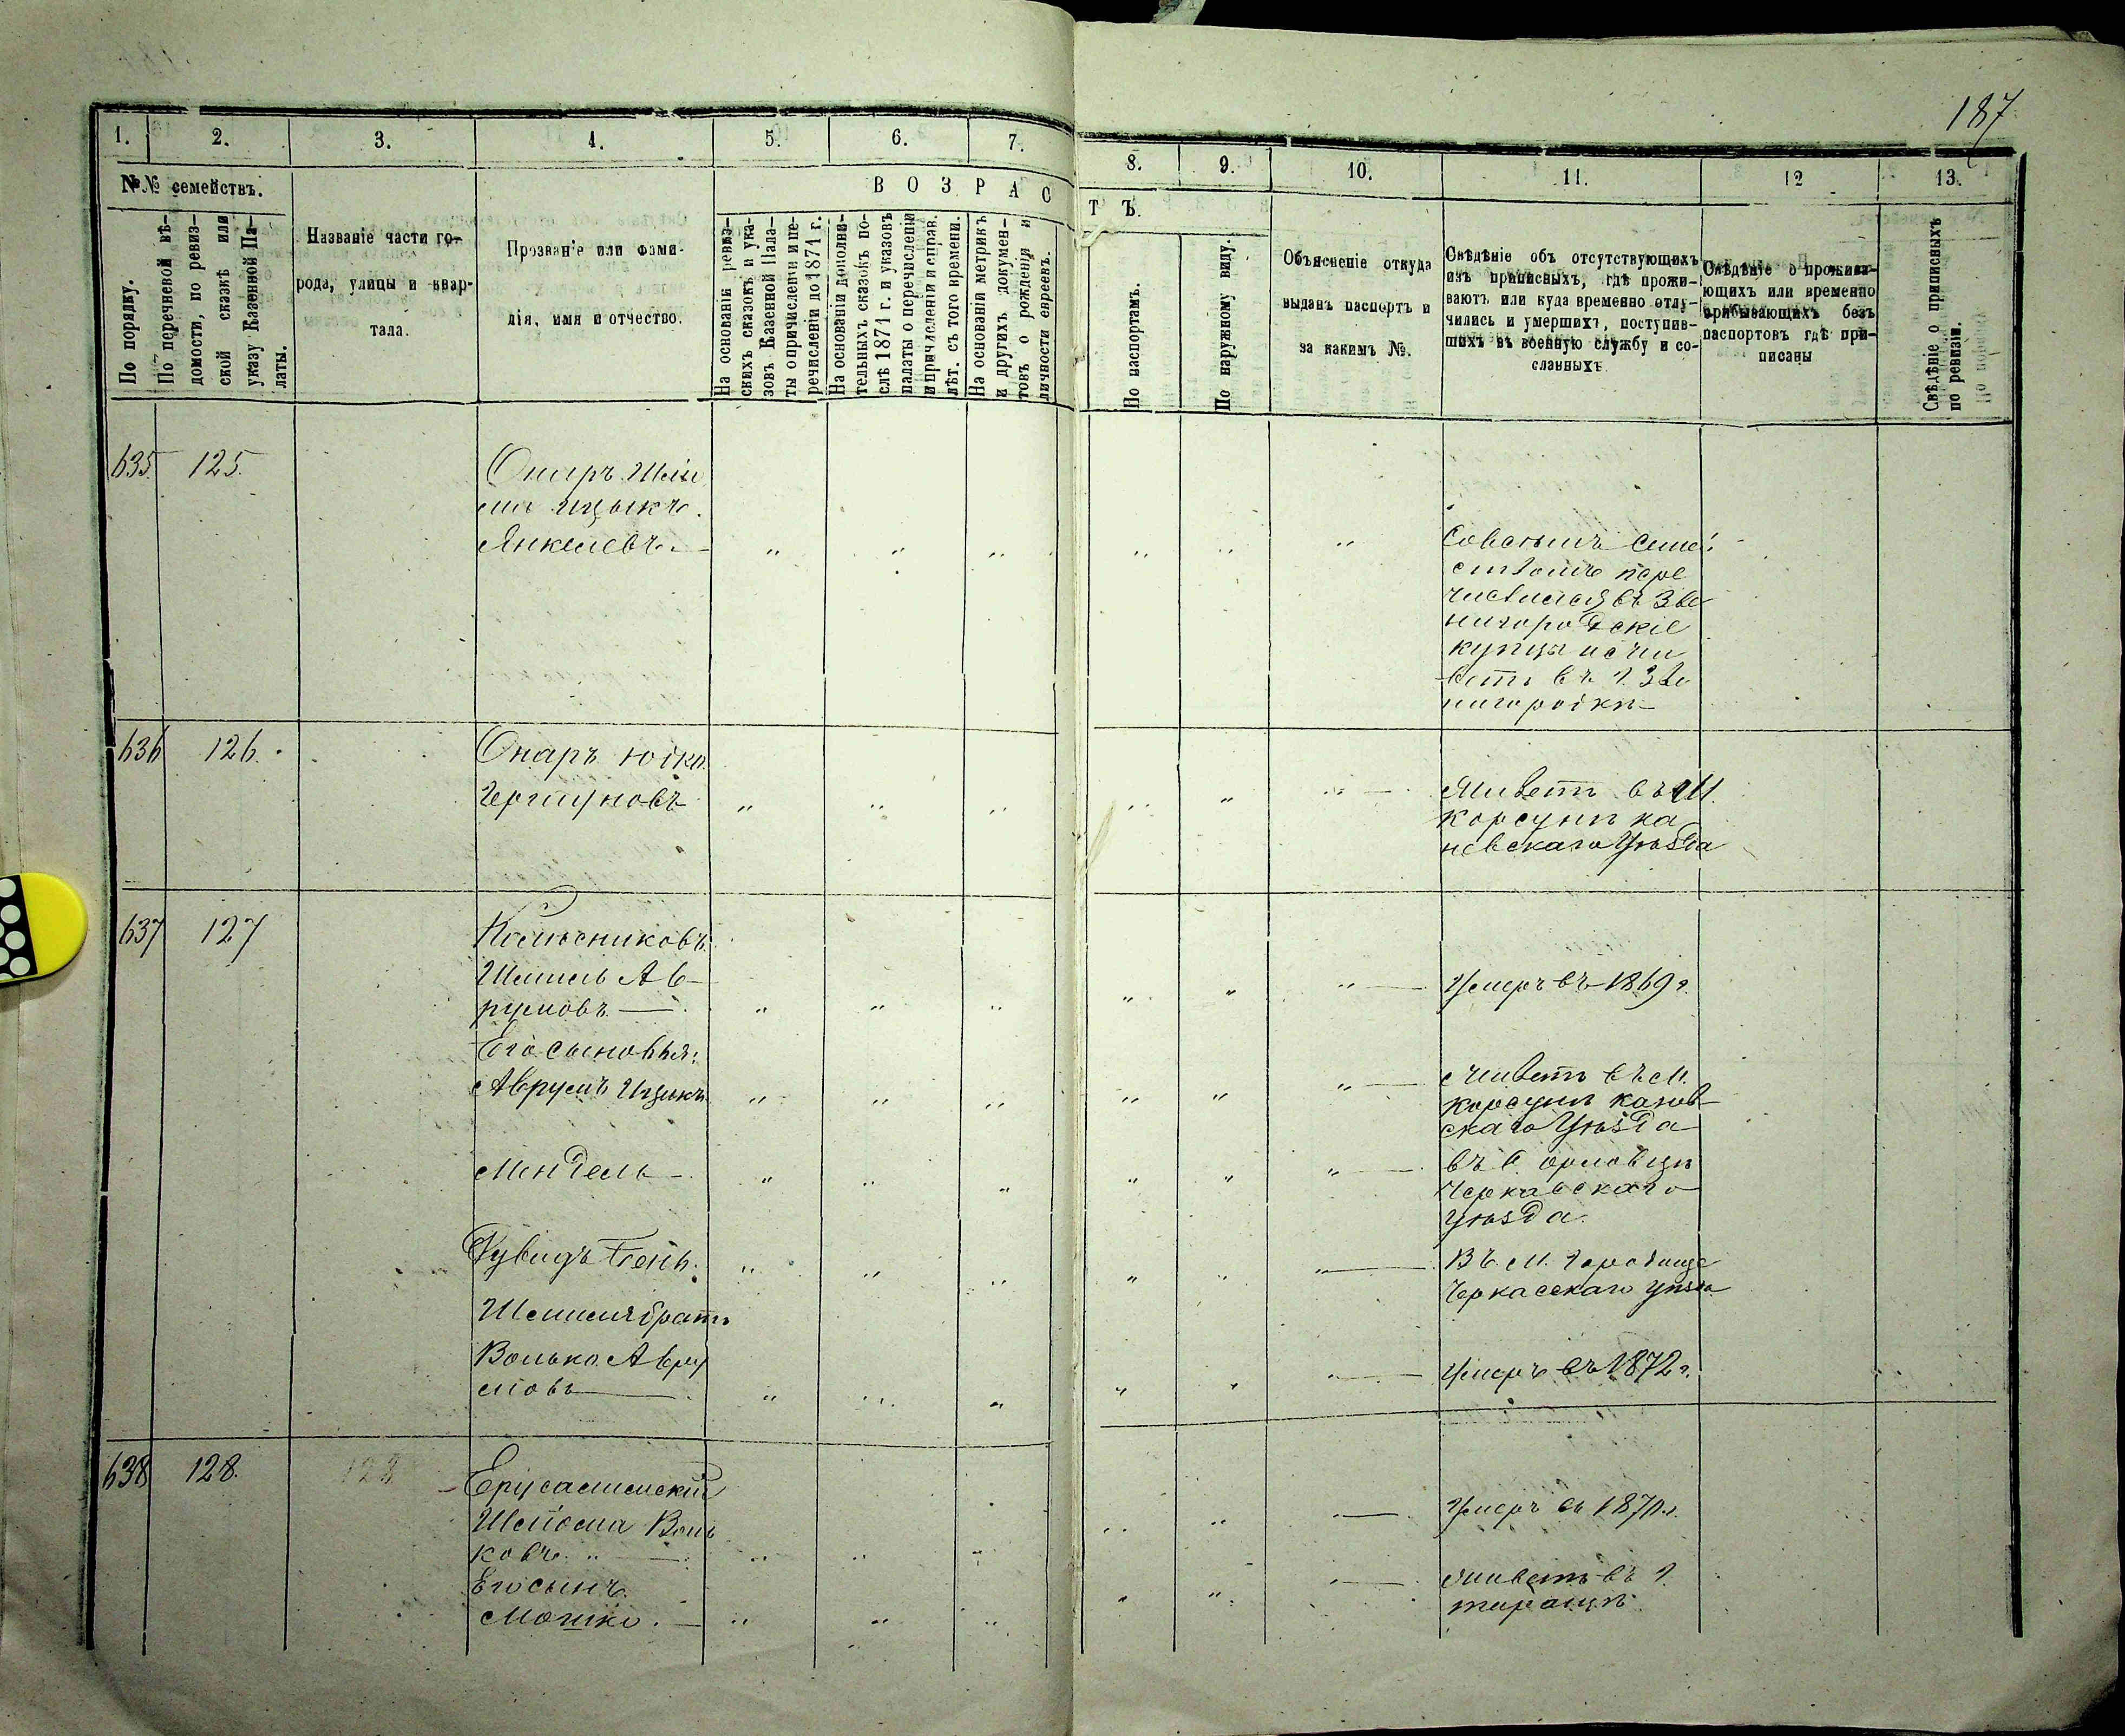 187
1. 2. 3. 4. 5. 6. 7. 8. 9. 10. 11. 12 13.
№№ семействъ.
По порядку.
По перечневой вѣ-
домости, по ревиз-
ской сказкѣ или
указу Казенной Па-
латы.
Названіе части го-
рода, улицы и квар-
тала.
Прозваніе или фами-
лія, имя и отчество.
ВОЗРАСТЪ.
На основаніи ревиз-
скихъ сказокъ и ука-
зовъ Казенной Пала-
ты о причисленіи и пе-
речисленіи до 1871 г.
На основаніи дополни-
тельныхъ сказокъ по-
слѣ 1871 г. и указовъ
палаты о перечисленіи
и причисленіи и справ.
лѣт. съ того времени.
На основаніи метрикъ
и другихъ докумен-
товъ о рожденіи и
личности евреевъ.
По паспортамъ.
По наружному виду.
Объясненіе откуда
выданъ паспортъ и
за какимъ №.
Свѣдѣніе объ отсутствующихъ
изъ приписныхъ, гдѣ прожи-
ваютъ или куда временно отлу-
чились и умершихъ, поступив-
шихъ въ военную службу и со-
сланныхъ.
Свѣдѣніе о прожива-
ющихъ или временно
прибывающихъ безъ
паспортовъ гдѣ при-
писаны
Свѣдѣніе о приписныхъ
по ревизіи.
635. 125.
Ицыкъ.
Янкелевъ.
Совсѣмъ семей
ствомъ пере
числился въ Зве
нигородскіе
купцы и жи
ветъ въ г. Зве
нигородки
636 126.
Онаръ
Живетъ въ м.
Корсунѣ ка
невскаго уѣзда
637 127
Колѣсниковъ
Шмиль Ав-
румовъ
Его сыновья:
Аврумъ Ицыкъ
Мендель
Шмиля братъ
Волько Авру
мовъ
Умеръ въ 1869 г.
Живетъ въ м.
Корсунѣ канев
скаго уѣзда
въ с. Орловцѣ
Черкасскаго
уѣзда.
Въ м. Городище
Черкасскаго уѣзда
Умеръ въ 1872 г.
638 128. 128
Ерусалимскій
Шлйома Воль
ковъ
Его сынъ
Мошко.
Умеръ въ 1870 г.
Живетъ въ г.
Таращѣ